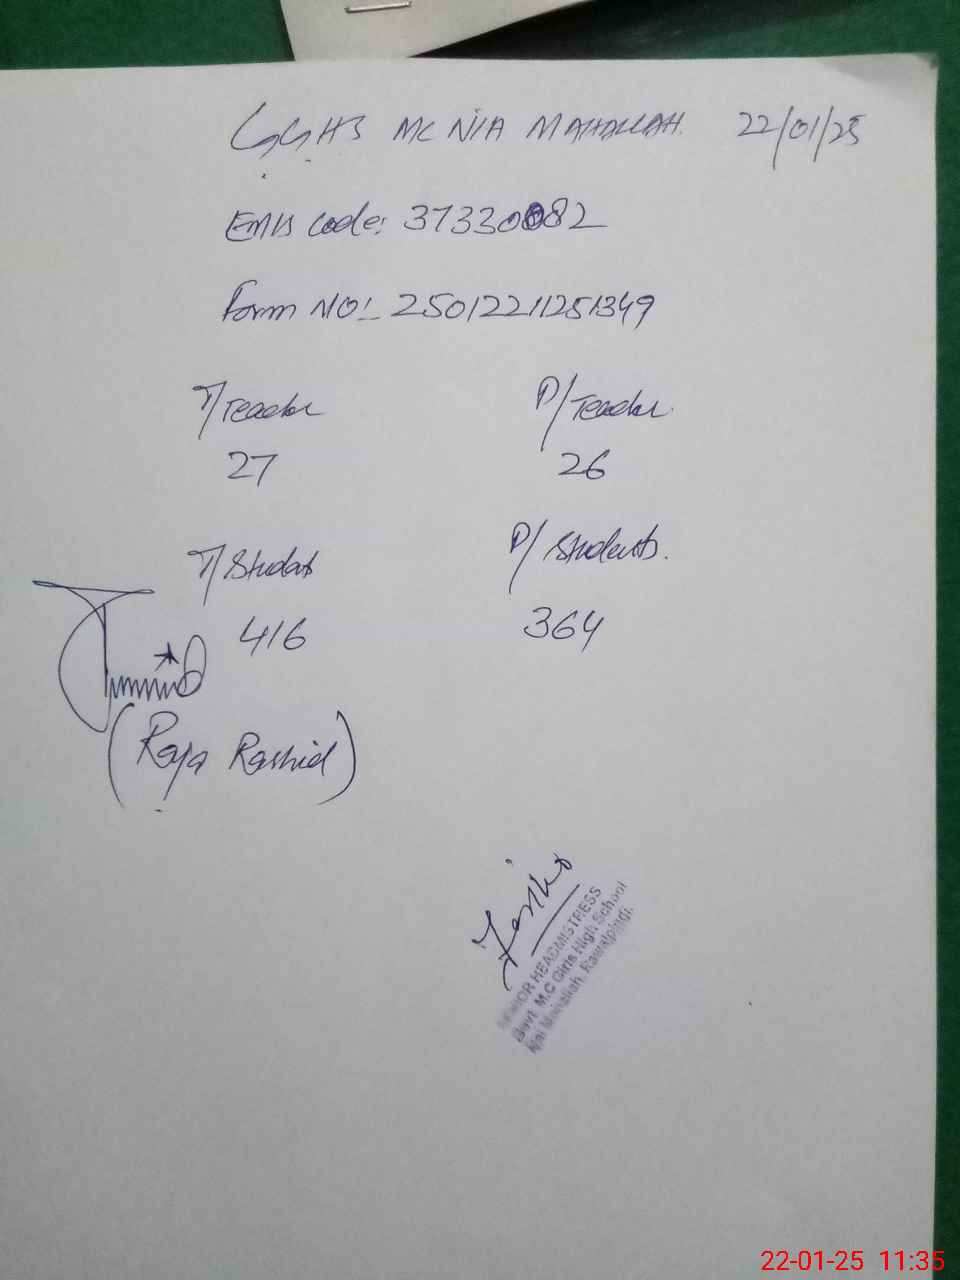 GGHS MC NIA MAHALLAH. 22/01/25
EMIS Code: 37330082
Form NO:- 25012211251349
T/Teacher P/Teacher.
27 26
T/Student P/Students.
416 364
(Raja Rashid)
SENIOR HEADMISTRESS
Govt. M.C Girls High School
Nai Mohallah, Rawalpindi.
22-01-25 11:35